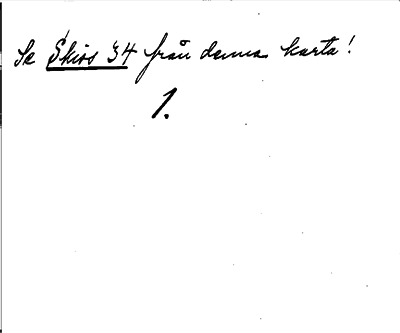 Se Skiss 34 från denna karta!
1.